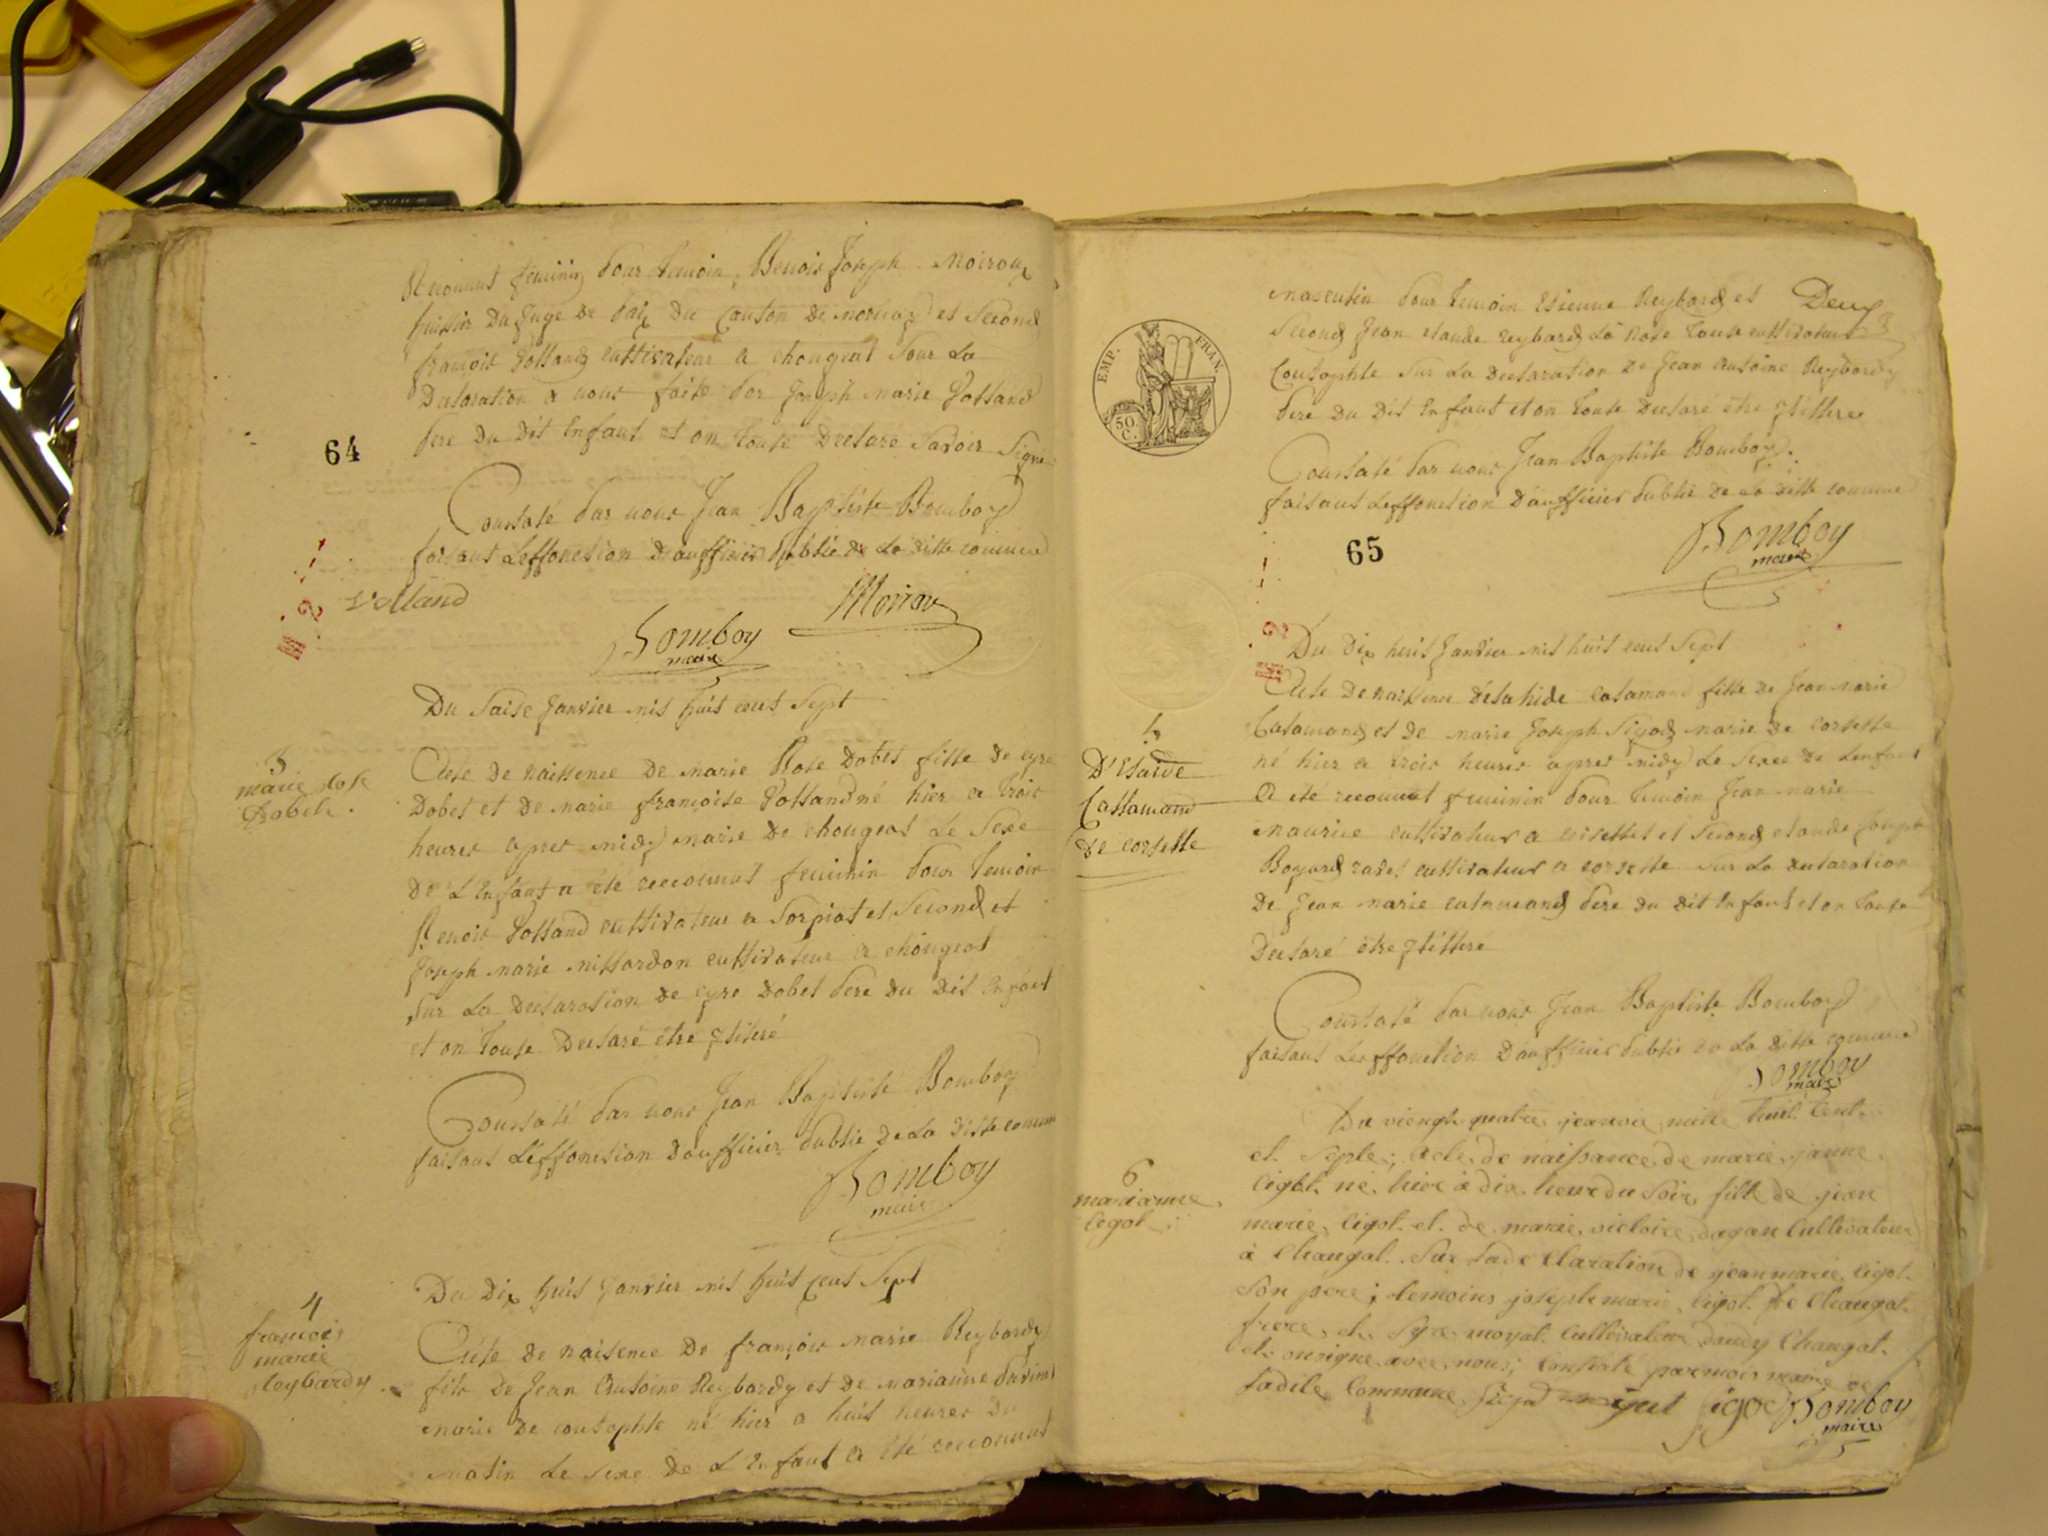 Reconnut feminin pour temoin Benois Joseph Moiroux
huissier du Juge de paix du Canton de et Second
françois Volland cultivateur a chougeat Sur La
Declaration a nous faite par Joseph marie Volland
pere du dit Enfant et on toute Declaré Savoir Signe
64
Constaté par nous Jean Baptiste Bomboy
faisant Leffonction d'aufficier publie de La ditte comune
Volland
Bomboy
maire
Du Saise Janvier mis huit cent Sept
3
marie rose
Acte de naissence de marie Rose Dobet fille de cyre
Dobet et de marie françoise Volland né hier a trois
heures apres midy marie de chougeat Le Sexe
de L'Enfant a été reconnut feminin pour temoin
Benois Volland cultivateur a Sorpiat et Second et
Joseph marie millardon cultivateur a chougeat
Sur La Declaration de cyre Dobet pere du dit Enfant
et on toute Declaré etre
Constaté par nous Jean Baptiste Bomboy
faisant Leffonction d'aufficier publie de La ditte comune
Bomboy
maire
Du Dix huit Janvier mis huit Cent Sept
4
françois
marie
Reybardy
Acte de naisence de françois marie Reybardy
fils de Jean Antoine Reybardy et de marianne
marie de né hier a huit heures du
matin Le Sexe de L'Enfant a été reconnut
EMP. FRAN.
50 C.
masculin pour temoin Etienne Reybard et Deux
Second Jean claude reybard toute cultivateur
Sur La Declaration de Jean Antoine Reybardy
pere du Dit Enfant et on toute Declaré être
Constaté par nous Jean Baptiste Bomboy
faisant Leffonction d'aufficier publie de La ditte comune
Bomboy
maire
65
Du Dix huit Janvier mis huit cent Sept
5
Cattamand
de corselle
Acte de naissence fille de Jean marie
Catamand et de marie Joseph marie de corselle
né hier a trois heures apres midy Le Sexe de L'enfant
a été reconnut feminin pour temoin Jean marie
maurice cultivateur a et Second claude Joseph
cultivateur a corselle Sur La declaration
de Jean marie catamand pere du dit Enfant et on toute
Declaré être
Constaté par nous Jean Baptiste Bomboy
faisant Leffonction D'aufficier publie de La ditte comune
Bomboy
maire
Du viengt quatre mille huit Cent
et Septe, Acte de naissance de marie janne
6
marianne
Ligot
Ligot ne hier à dix heur du Soir fille de jean
marie Ligot et de marie victoire Cultivateur
à Chaugat Sur la declaration de jean marie Ligot
Son pere; temoins joseph marie Ligot de Chaugat
frere et moyat Cultivateur Chaugat
et on signe avec nous; Constaté par moi maire de
ladite Commune
Bomboy
maire